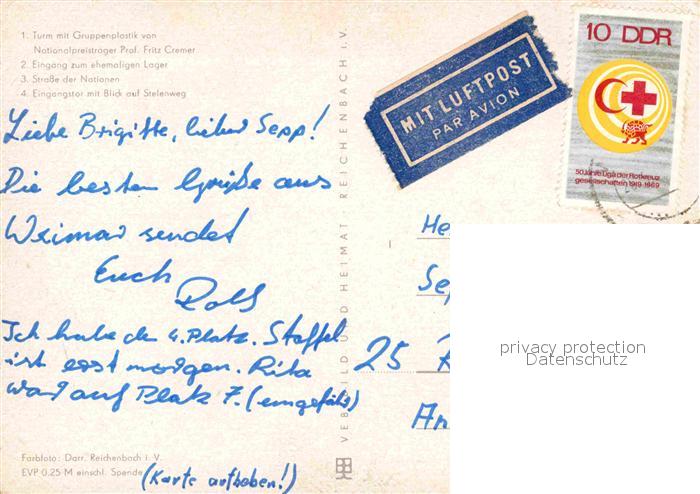 1. Turm mit Gruppenplastik von
Nationalpreisträger Prof. Fritz Cremer
2. Eingang zum ehemaligen Lager
3. Straße der Nationen
4. Eingangstor mit Blick auf Stelenweg
MIT LUFTPOST
PAR AVION
10 DDR
50 Jahre Liga der Rotkreuz
gesellschaften 1919-1969
Liebe Brigitte, lieber Sepp!
Die besten Grüße aus
Weimar sendet
Euch
Rolf
Ich habe den 4. Platz. Staffel
ist erst morgen. Rita
war auf Platz 7. (ungefähr)
(Karte aufheben!)
VEB BILD UND HEIMAT · REICHENBACH i. V.
He
Se
25
An
privacy protection
Datenschutz
Farbfoto: Darr, Reichenbach i. V.
EVP 0.25 M einschl. Spende